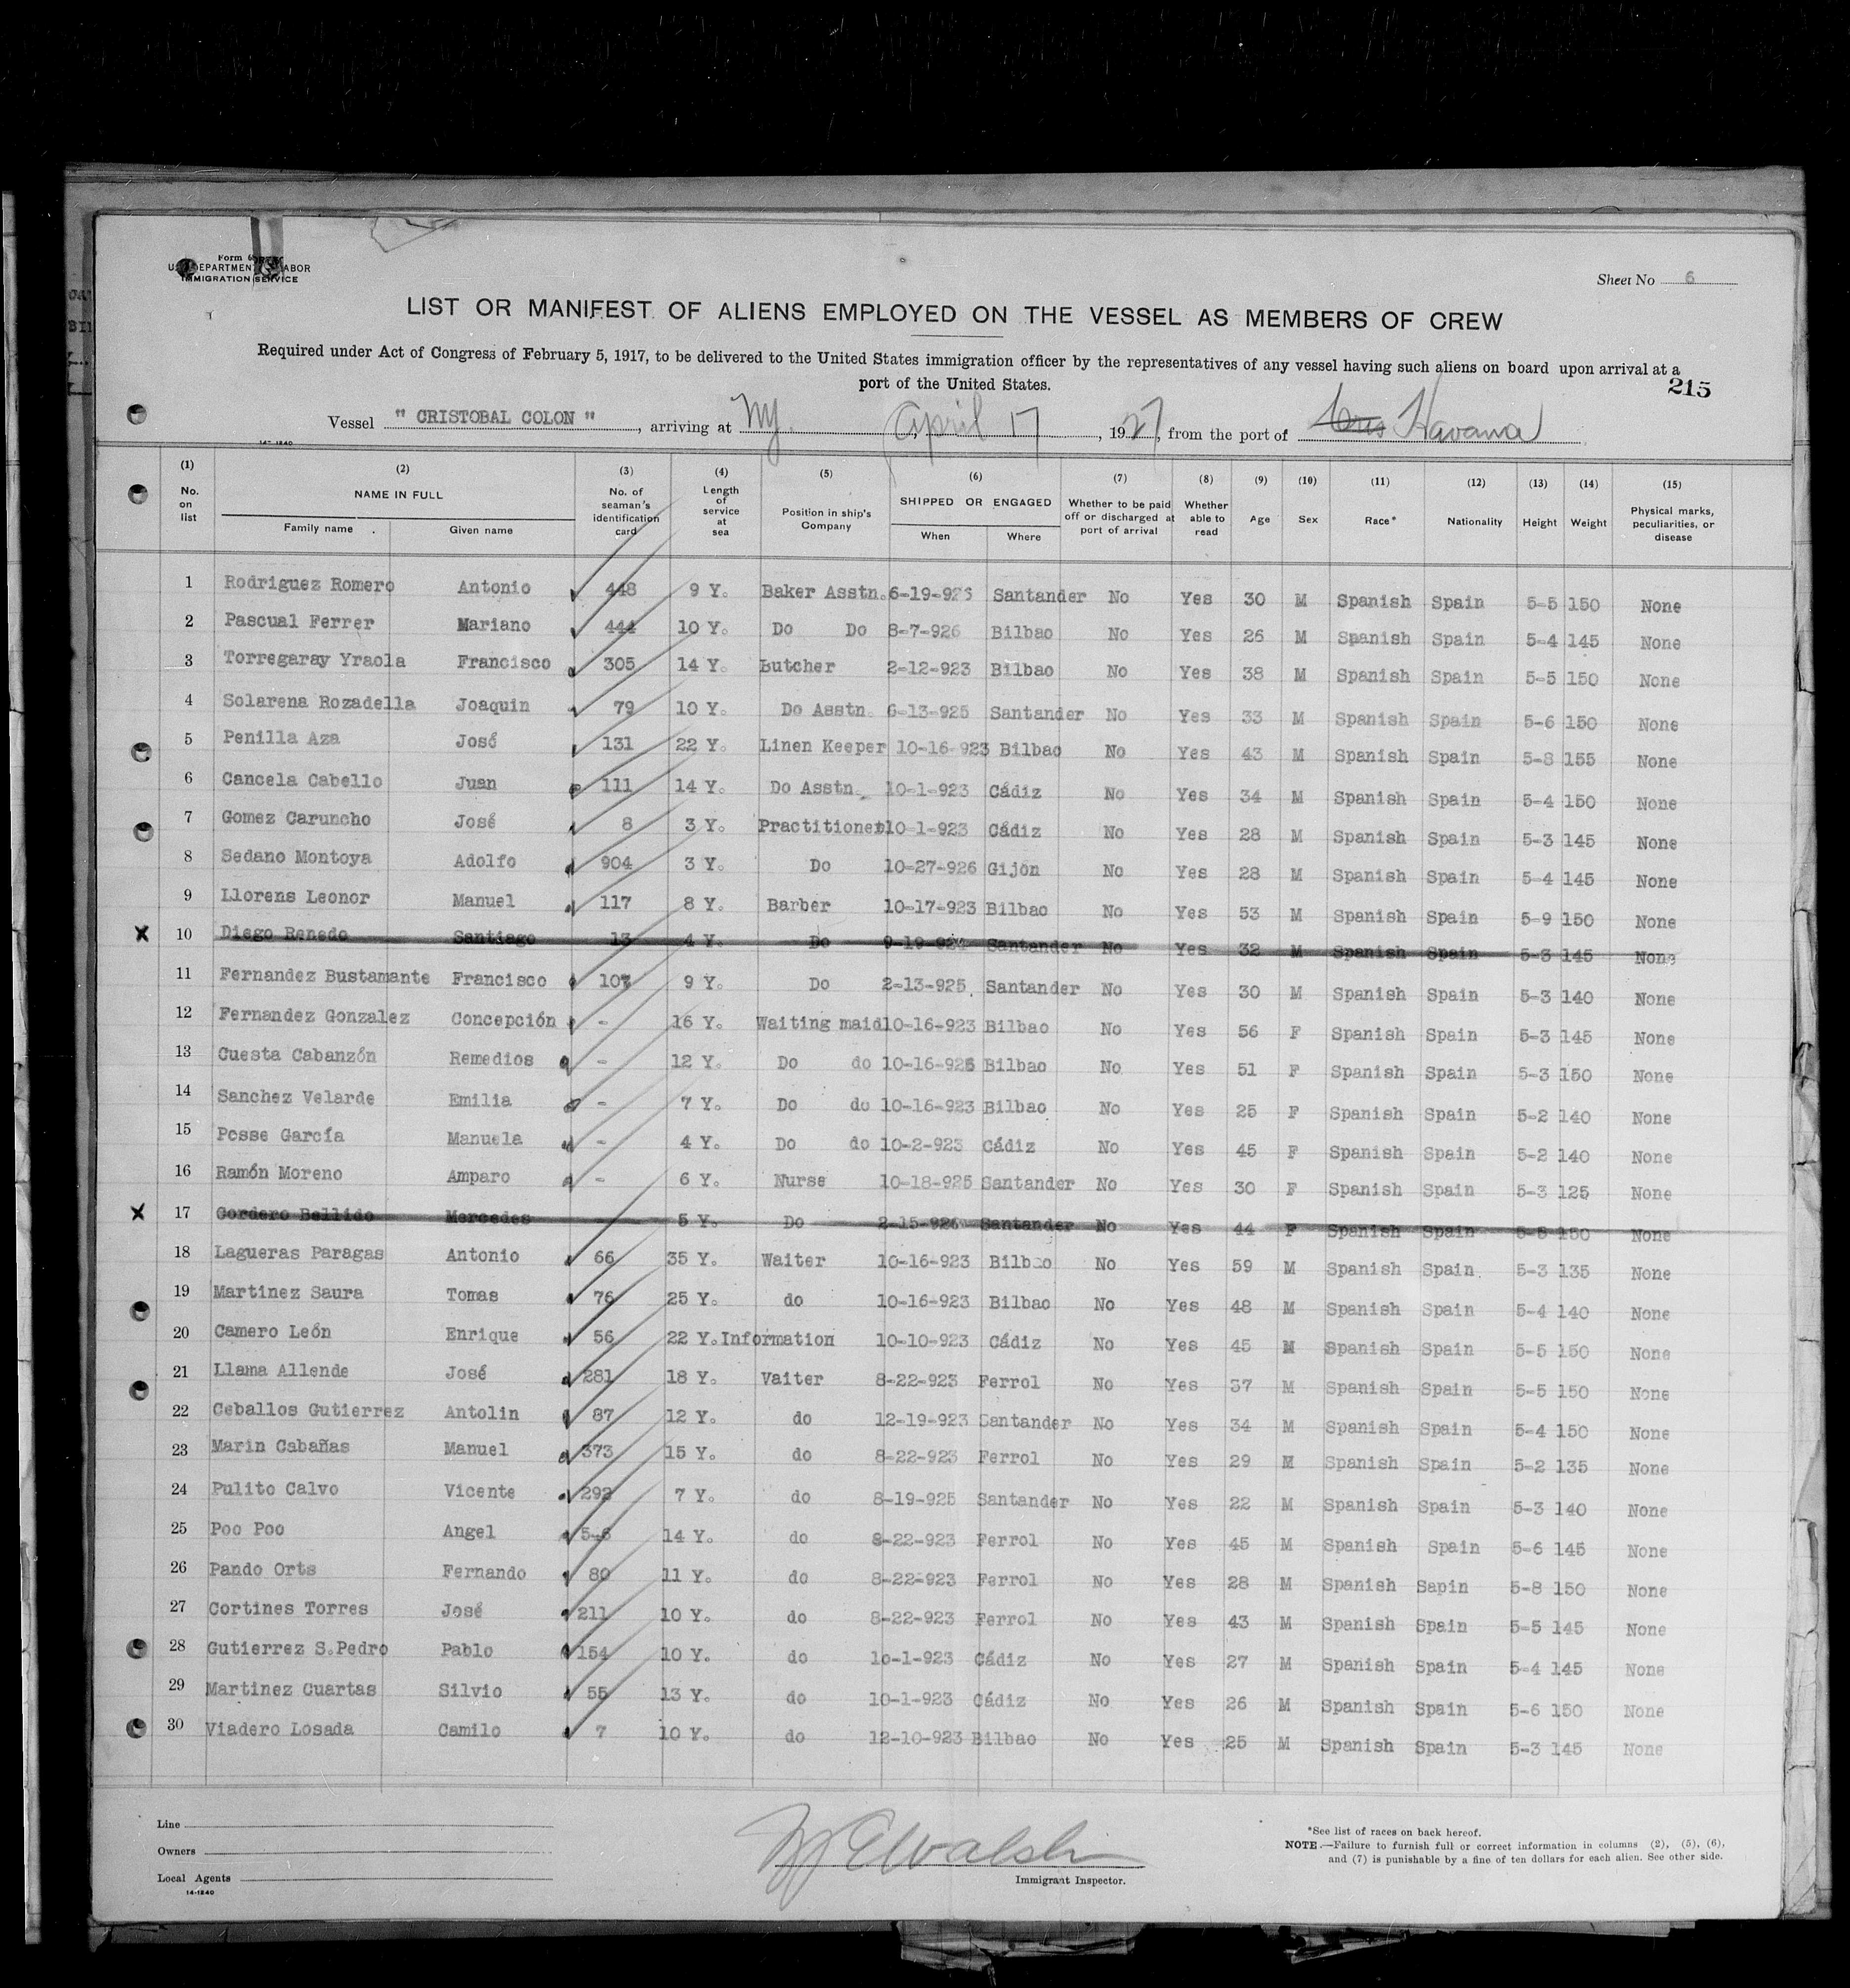 Form
U. S. DEPARTMENT OF LABOR
IMMIGRATION SERVICE
Sheet No 6
LIST OR MANIFEST OF ALIENS EMPLOYED ON THE VESSEL AS MEMBERS OF CREW
Required under Act of Congress of February 5, 1917, to be delivered to the United States immigration officer by the representatives of any vessel having such aliens on board upon arrival at a
port of the United States.
215
Vessel " CRISTOBAL COLON ", arriving at NY., April 17, 1927, from the port of Havana
14-1240
(1) (2) (3) (4) (5) (6) (7) (8) (9) (10) (11) (12) (13) (14) (15)
No. on list NAME IN FULL Family name Given name No. of seaman's identification card Length of service at sea Position in ship's Company SHIPPED OR ENGAGED When Where Whether to be paid off or discharged at port of arrival Whether able to read Age Sex Race* Nationality Height Weight Physical marks, peculiarities, or disease
1 Rodriguez Romero Antonio 448 9 Y. Baker Asstn. 6-19-926 Santander No Yes 30 M Spanish Spain 5-5 150 None
2 Pascual Ferrer Mariano 444 10 Y. Do Do 8-7-926 Bilbao No Yes 26 M Spanish Spain 5-4 145 None
3 Torregaray Yraola Francisco 305 14 Y. Butcher 2-12-923 Bilbao No Yes 38 M Spanish Spain 5-5 150 None
4 Solarena Rozadella Joaquin 79 10 Y. Do Asstn. 6-13-925 Santander No Yes 33 M Spanish Spain 5-6 150 None
5 Penilla Aza José 131 22 Y. Linen Keeper 10-16-923 Bilbao No Yes 43 M Spanish Spain 5-8 155 None
6 Cancela Cabello Juan 111 14 Y. Do Asstn. 10-1-923 Cádiz No Yes 34 M Spanish Spain 5-4 150 None
7 Gomez Caruncho José 8 3 Y. Practitioner 10-1-923 Cádiz No Yes 28 M Spanish Spain 5-3 145 None
8 Sedano Montoya Adolfo 904 3 Y. Do 10-27-926 Gijón No Yes 28 M Spanish Spain 5-4 145 None
9 Llorens Leonor Manuel 117 8 Y. Barber 10-17-923 Bilbao No Yes 53 M Spanish Spain 5-9 150 None
X 10 Diego Renedo Santiago 13 4 Y. Do 9-19-924 Santander No Yes 32 M Spanish Spain 5-3 145 None
11 Fernandez Bustamante Francisco 107 9 Y. Do 2-13-925. Santander No Yes 30 M Spanish Spain 5-3 140 None
12 Fernandez Gonzalez Concepción - 16 Y. Waiting maid 10-16-923 Bilbao No Yes 56 F Spanish Spain 5-3 145 None
13 Cuesta Cabanzón Remedios - 12 Y. Do do 10-16-926 Bilbao No Yes 51 F Spanish Spain 5-3 150 None
14 Sanchez Velarde Emilia - 7 Y. Do do 10-16-923 Bilbao No Yes 25 F Spanish Spain 5-2 140 None
15 Posse García Manuela - 4 Y. Do do 10-2-923 Cádiz No Yes 45 F Spanish Spain 5-2 140 None
16 Ramón Moreno Amparo - 6 Y. Nurse 10-18-925 Santander No Yes 30 F Spanish Spain 5-3 125 None
X 17 Cordero Bellido Mercedes 5 Y. Do 2-15-926 Santander No Yes 44 F Spanish Spain 5-8 150 None
18 Lagueras Paragas Antonio 66 35 Y. Waiter 10-16-923 Bilbao No Yes 59 M Spanish Spain. 5-3 135 None
19 Martinez Saura Tomas 76 25 Y. do 10-16-923 Bilbao No Yes 48 M Spanish Spain 5-4 140 None
20 Camero León Enrique 56 22 Y. Information 10-10-923 Cádiz No Yes 45 M Spanish Spain 5-5 150 None
21 Llama Allende José 281 18 Y. Vaiter 8-22-923 Ferrol No Yes 37 M Spanish Spain 5-5 150 None
22 Ceballos Gutierrez Antolin 87 12 Y. do 12-19-923 Santander No Yes 34 M Spanish Spain 5-4 150 None
23 Marin Cabañas Manuel 373 15 Y. do 8-22-923 Ferrol No Yes 29 M Spanish Spain 5-2 135 None
24 Pulito Calvo Vicente 292 7 Y. do 8-19-925 Santander No Yes 22 M Spanish Spain 5-3 140 None
25 Poo Poo Angel 14 Y. do 8-22-923 Ferrol No Yes 45 M Spanish Spain 5-6 145 None
26 Pando Orts Fernando 80 11 Y. do 8-22-923 Ferrol No Yes 28 M Spanish Sapin 5-8 150 None
27 Cortines Torres José 211 10 Y. do 8-22-923 Ferrol No Yes 43 M Spanish Spain 5-5 145 None
28 Gutierrez S.Pedro Pablo 154 10 Y. do 10-1-923 Cádiz No Yes 27 M Spanish Spain 5-4 145 None
29 Martinez Cuartas Silvio 55 13 Y. do 10-1-923 Cádiz No Yes 26 M Spanish Spain 5-6 150 None
30 Viadero Losada Camilo 7 10 Y. do 12-10-923 Bilbao No Yes 25 M Spanish Spain 5-3 145 None
Line
Owners
Local Agents
14-1240
Walsh
Immigrant Inspector.
*See list of races on back hereof.
NOTE.—Failure to furnish full or correct information in columns (2), (5), (6),
and (7) is punishable by a fine of ten dollars for each alien. See other side.